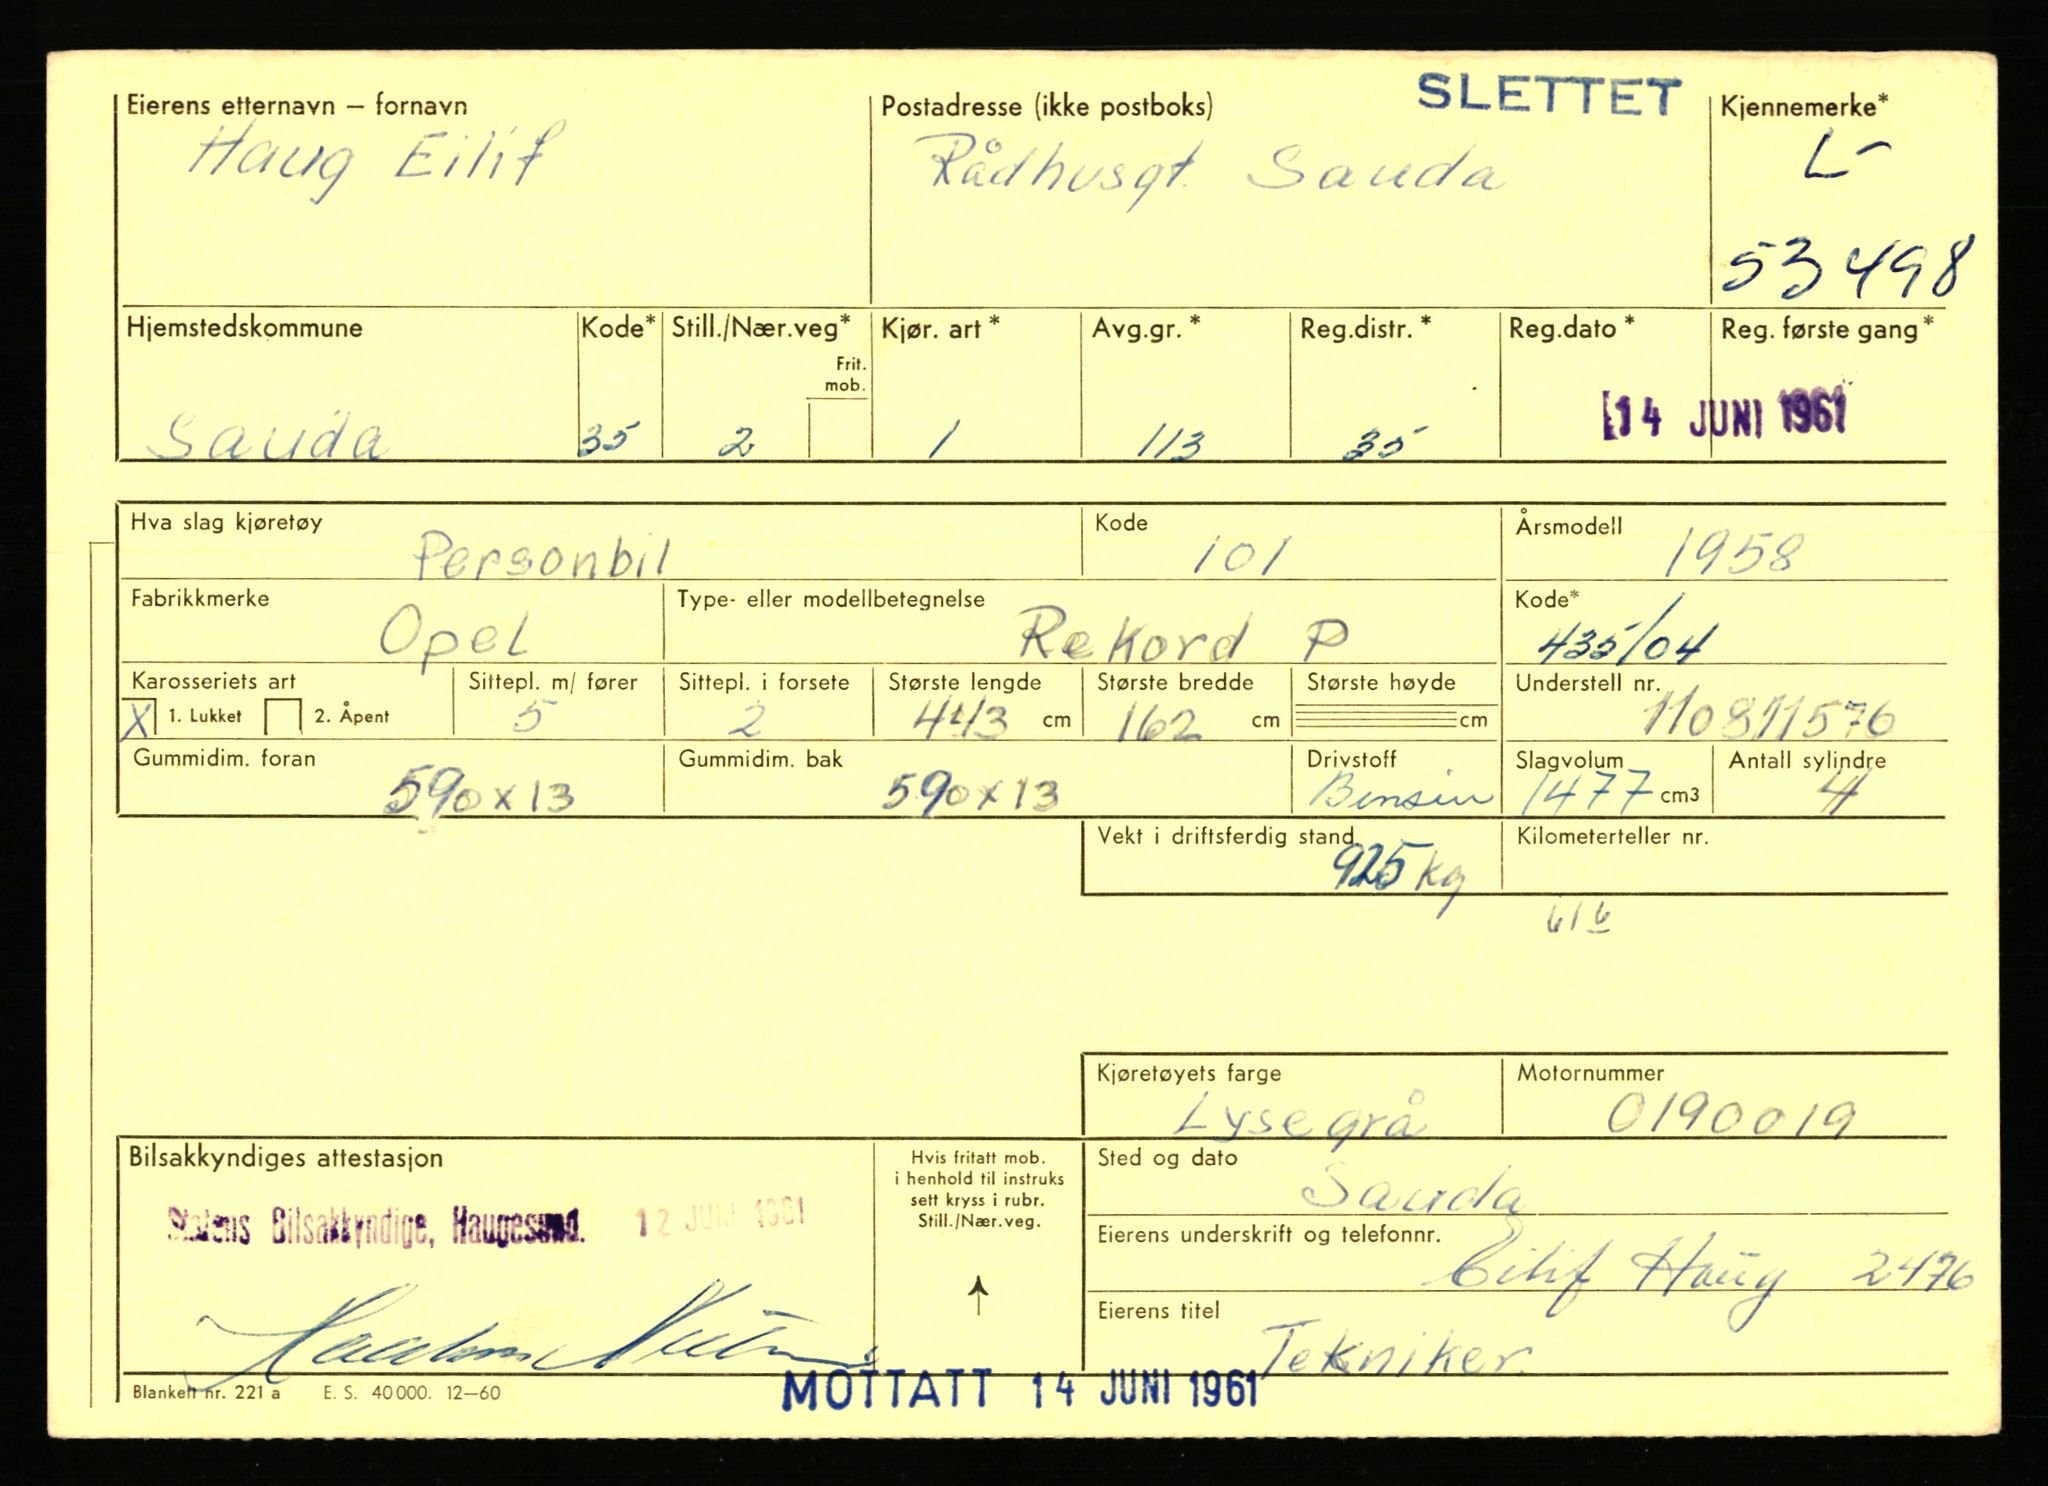 SLETTET
Eierens etternavn – fornavn
Haug Eilif
Postadresse (ikke postboks)
Rådhusgt. Sauda
Kjennemerke*
L-
53498
Hjemstedskommune
Sauda
Kode*
35
Still./Nær.veg*
2
Frit.
mob.
Kjør. art *
1
Avg.gr. *
113
Reg.distr. *
35
Reg.dato *
Reg. første gang *
14 JUNI 1961
Hva slag kjøretøy
Personbil
Kode
101
Årsmodell
1958
Fabrikkmerke
Opel
Type- eller modellbetegnelse
Rekord P
Kode*
435/04
Karosseriets art
X 1. Lukket 2. Åpent
Sittepl. m/ fører
5
Sittepl. i forsete
2
Største lengde
443 cm
Største bredde
162 cm
Største høyde
cm
Understell nr.
110811576
Gummidim. foran
590 x 13
Gummidim. bak
590 x 13
Drivstoff
Bensin
Slagvolum
1477 cm3
Antall sylindre
4
Vekt i driftsferdig stand
925 kg
Kilometerteller nr.
616
Kjøretøyets farge
Lysegrå
Motornummer
0190019
Bilsakkyndiges attestasjon
Statens Bilsakkyndige, Haugesund. 12 JUNI 1961
Hvis fritatt mob.
i henhold til instruks
sett kryss i rubr.
Still./Nær.veg.
↑
Sted og dato
Sauda
Eierens underskrift og telefonnr.
Eilif Haug 2476
Eierens titel
Tekniker.
Blankett nr. 221 a E. S. 40 000. 12–60
MOTTATT 14 JUNI 1961